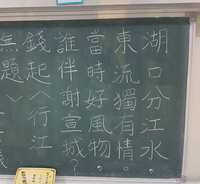 湖口分江水。
東流獨有情。
當時好風物。
誰伴謝宣城?
錢起〈行江
無題〉